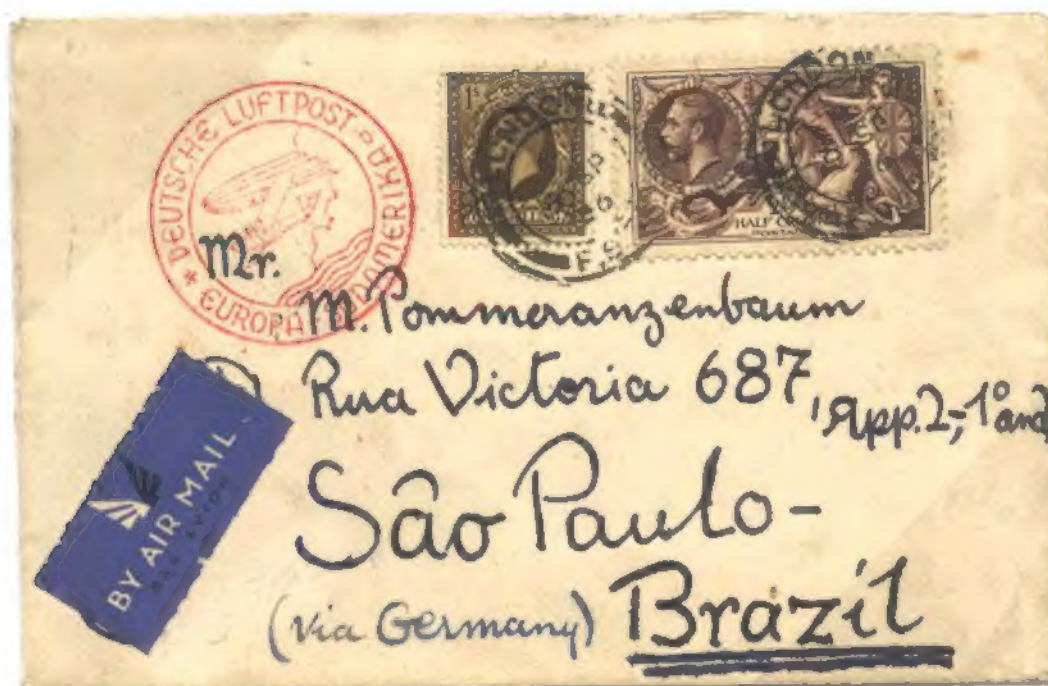 DEUTSCHE LUFTPOST
EUROPA - SÜDAMERIKA
1s
LONDON
F.S.
LONDON
HALF
Mr.
M. Pommeranzenbaum
Rua Victoria 687, App. 2, 1º and
São Paulo -
(via Germany) Brazil
BY AIR MAIL
PAR AVION